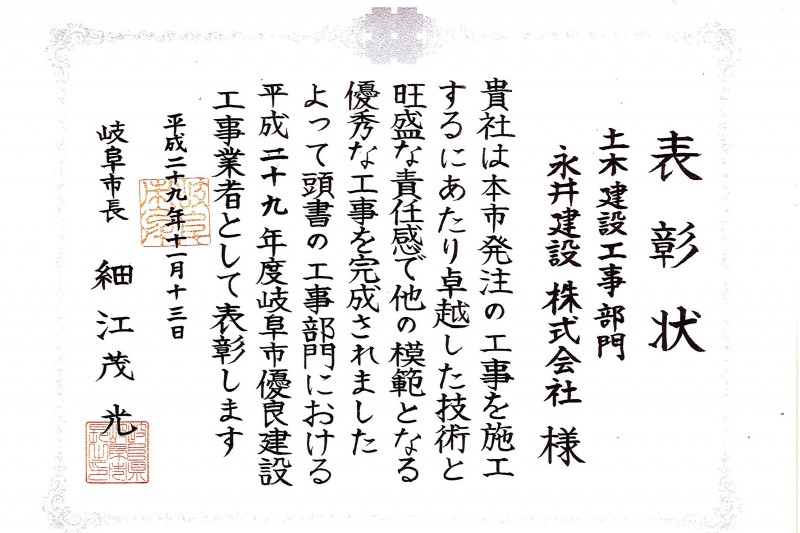 表彰状
土木建設工事部門
永井建設株式会社 様
貴社は本市発注の工事を施工
するにあたり卓越した技術と
旺盛な責任感で他の模範となる
優秀な工事を完成されました
よって頭書の工事部門における
平成二十九年度岐阜市優良建設
工事業者として表彰します
平成二十九年十一月十三日
岐阜市長 細江茂光